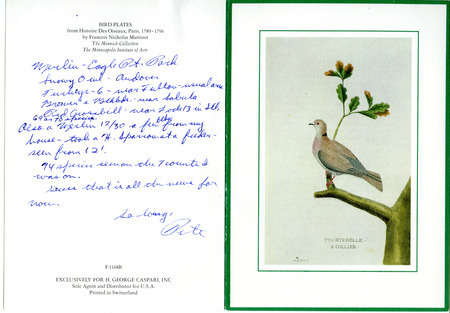 BIRD PLATES
from Histoire Des Oiseaux, Paris, 1780-1796
by Francois Nicholas Martinet
The Minnich Collection
The Minneapolis Institute of Arts
Merlin - Eagle Pt. Park
Snowy Owl - Andover
Turkeys - 6 - near Fulton - usual area
Brown - near Sabula
Red Crossbill - near Lock 13 in Ill.
Also a Merlin 12/30 a few from my
house - took a H. Sparrow at a feeder -
seen from 12'.
94 species seen on the 7 counts I
was on.
Guess that is all the news for
now.
So long,
Pete
F-1168B
EXCLUSIVELY FOR H. GEORGE CASPARI, INC
Sole Agent and Distributor for U.S.A.
Printed in Switzerland
TOURTERELLE
A COLLIER